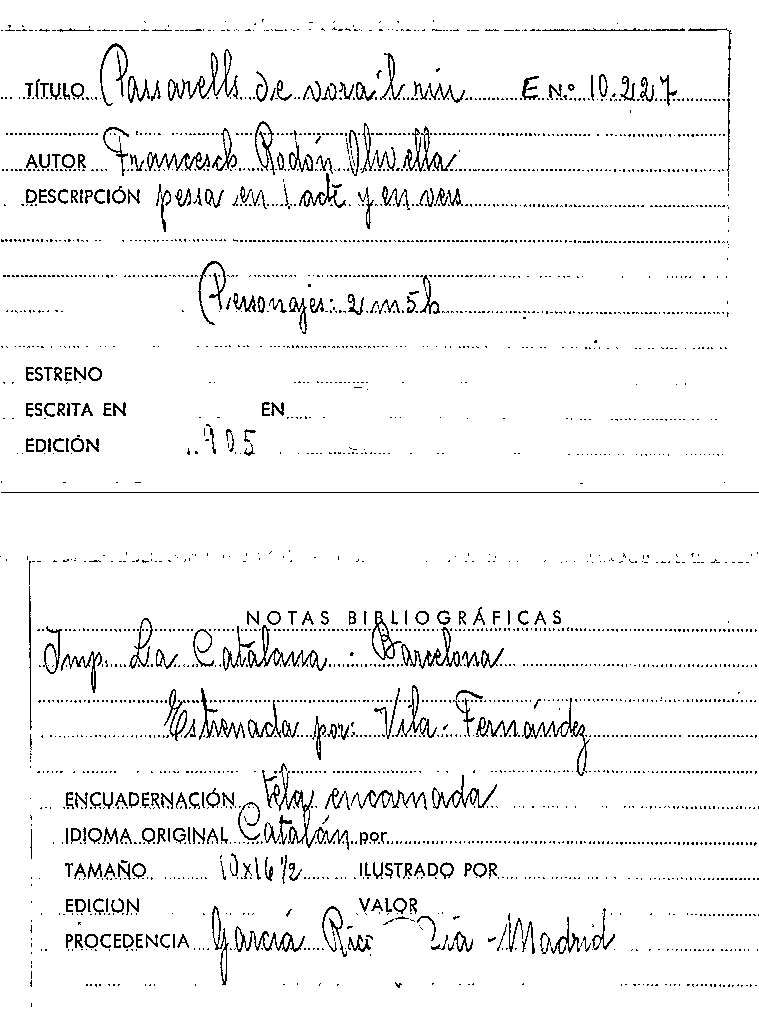 TÍTULO Passarells de vora'l niu E N.º 10.227
AUTOR Francesch Rodón Olivella
DESCRIPCIÓN pessa en 1 acte y en vers
Personajes: 2 m 5 h
ESTRENO
ESCRITA EN EN
EDICIÓN 905
NOTAS BIBLIOGRÁFICAS
Imp. La Catalana - Barcelona
Estrenada por: Vila-Fernández
ENCUADERNACIÓN tela encarnada
IDIOMA ORIGINAL Catalán por
TAMAÑO 10x16 1/2 ILUSTRADO POR
EDICION VALOR
PROCEDENCIA García Rico - Madrid